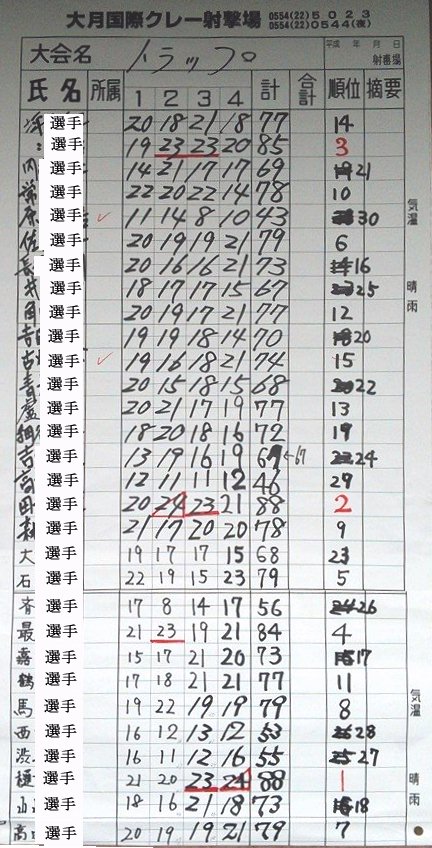 大月国際クレー射撃場 0554(22)5023
0554(22)0544(夜)
大会名 トラップ 平成 年 月 日
射撃場
氏名 所属 1 2 3 4 計 合計 順位 摘要
選手 20 18 21 18 77 14
選手 19 23 23 20 85 3
内 選手 14 21 17 17 69 21
常 選手 22 20 22 14 78 10
原 選手 ✓ 11 14 8 10 43 30
佐 選手 20 19 19 21 79 6
長 選手 20 16 16 21 73 16
井 選手 18 17 17 15 67 25
角 選手 20 19 17 21 77 12
吉 選手 19 19 18 14 70 20
古 選手 ✓ 19 16 18 21 74 15
青 選手 20 15 18 15 68 22
選手 20 21 17 19 77 13
選手 18 20 18 16 72 19
吉 選手 13 19 16 19 ←67 24
高 選手 12 11 11 12 46 29
田 選手 20 24 23 21 88 2
選手 21 17 20 20 78 9
大 選手 19 17 17 15 68 23
石 選手 22 19 15 23 79 5
斉 選手 17 8 14 17 56 26
最 選手 21 23 19 21 84 4
選手 15 17 21 20 73 17
鶴 選手 17 18 21 21 77 11
馬 選手 19 22 19 19 79 8
西 選手 16 12 13 12 53 28
渋 選手 16 11 12 16 55 27
樋 選手 21 20 23 24 88 1
山 選手 18 16 21 18 73 18
高 選手 20 19 19 21 79 7
気温
晴雨
気温
晴雨